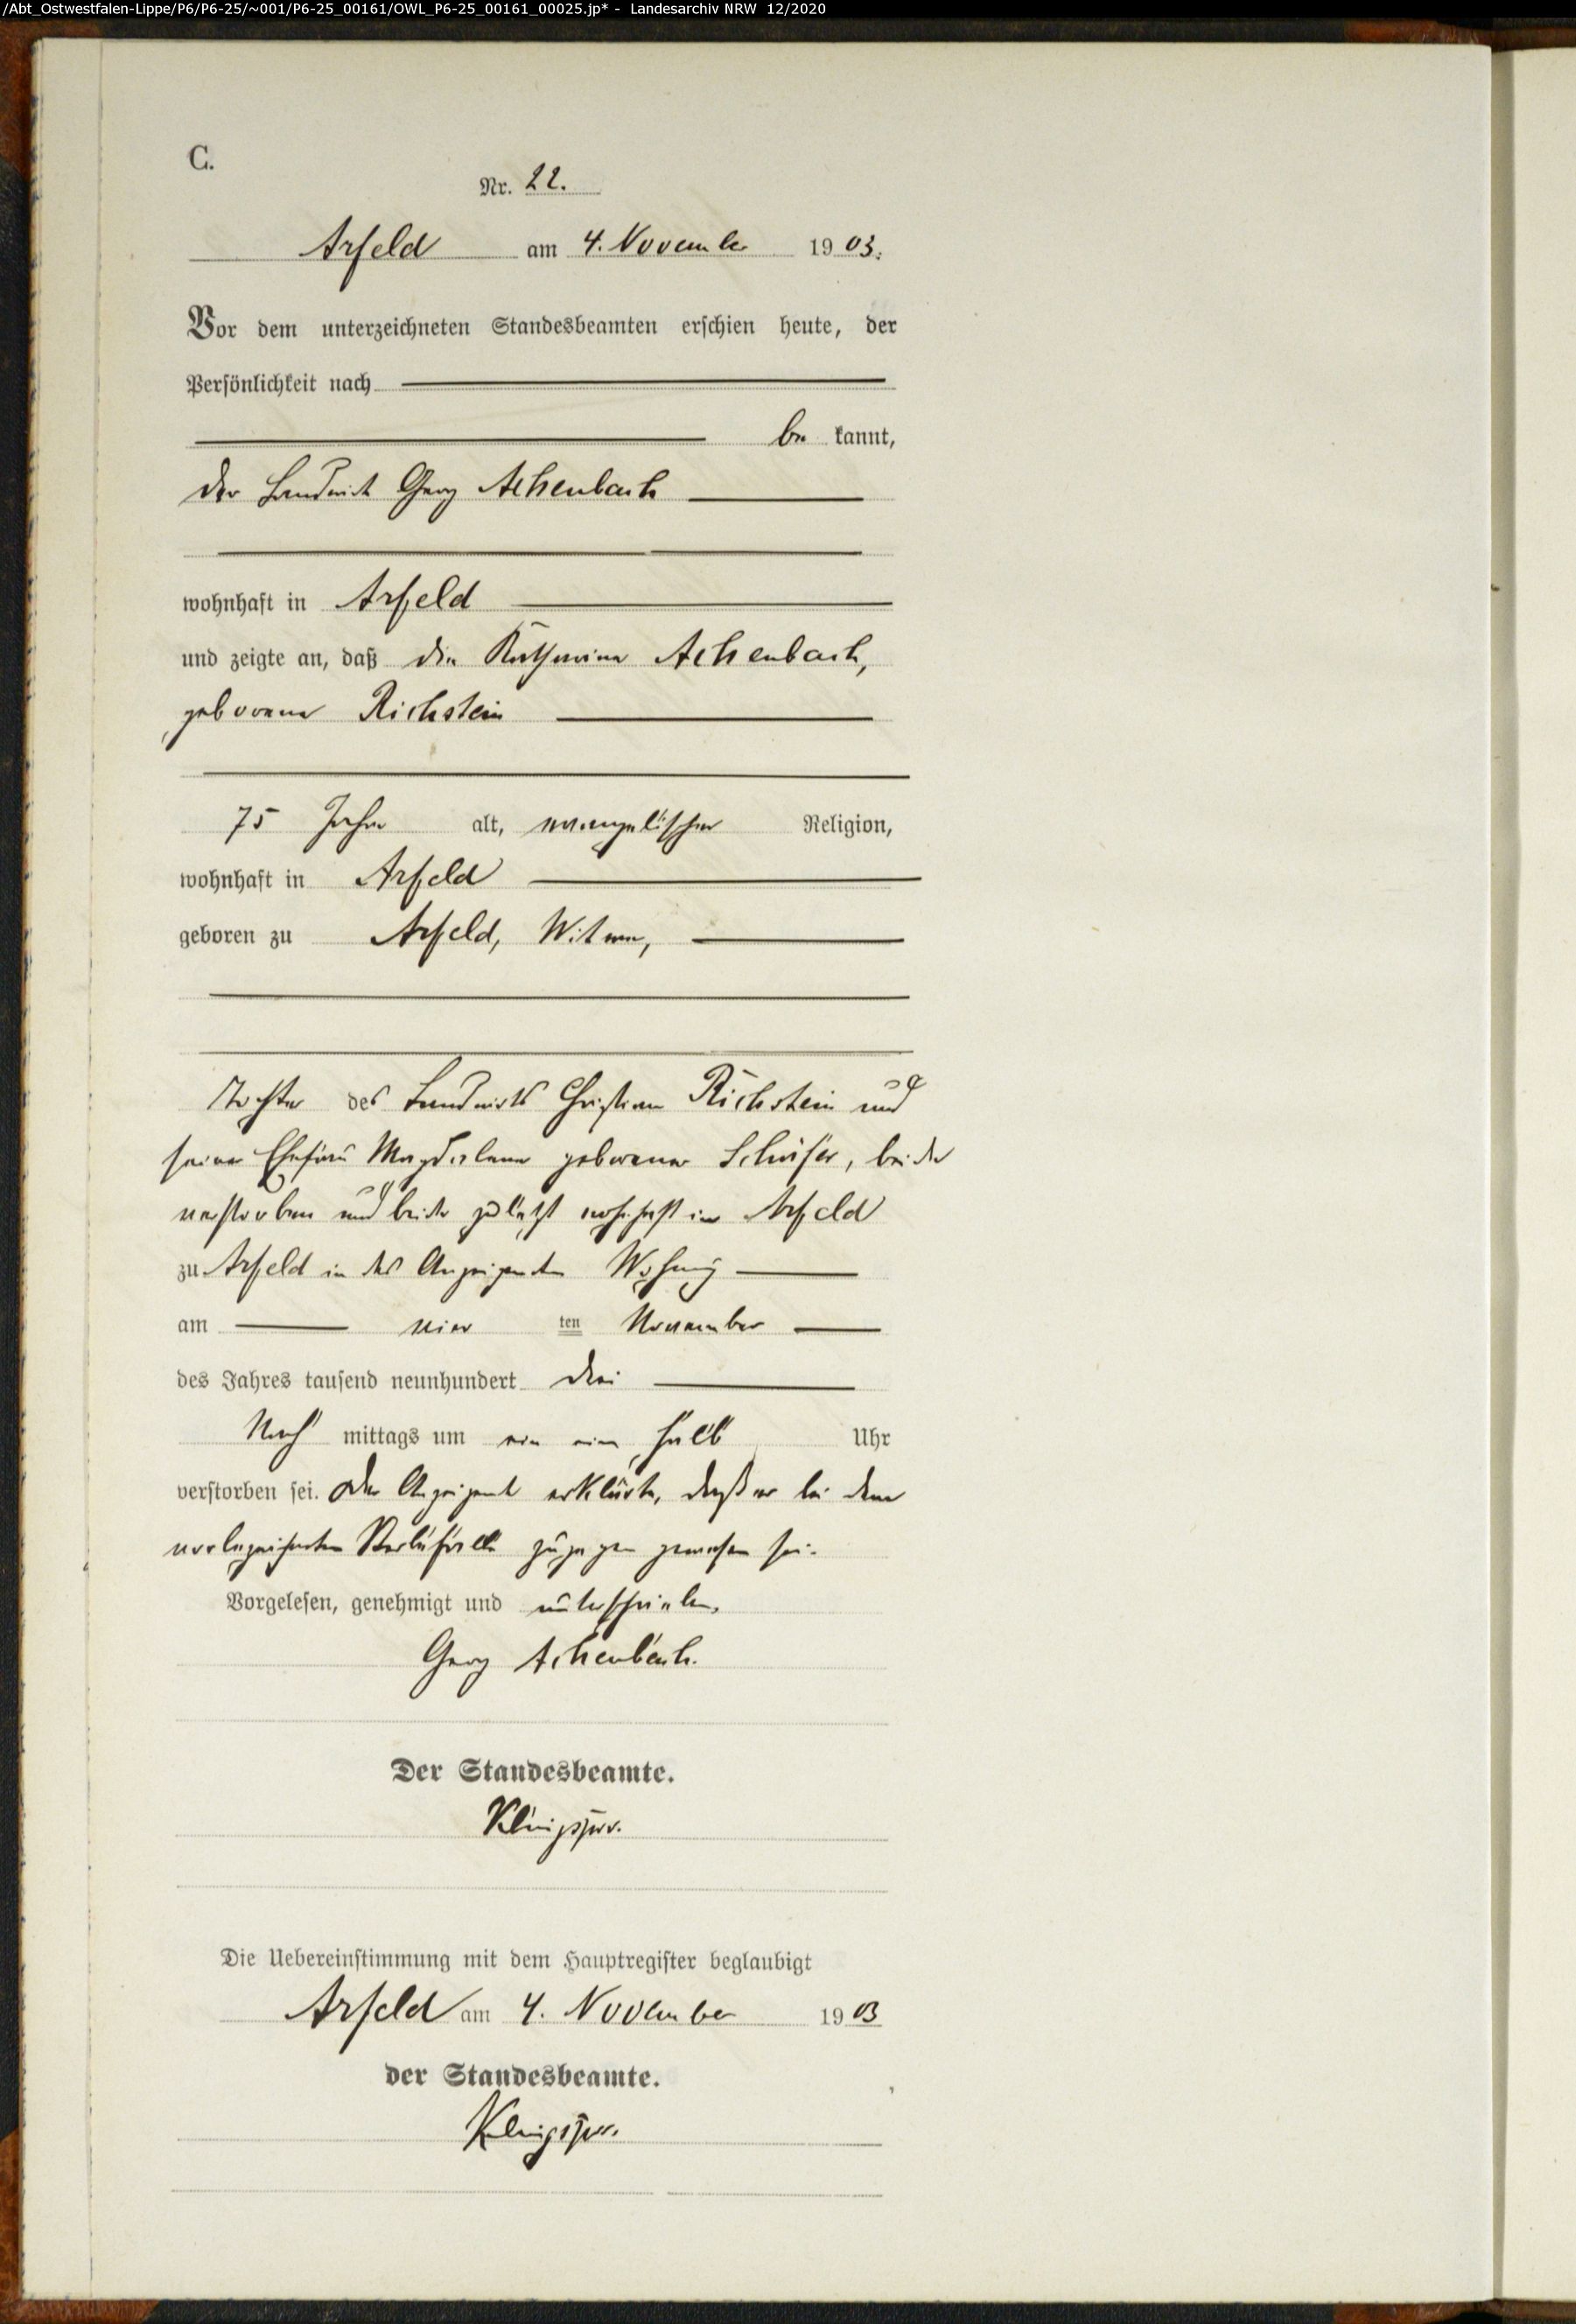 /Abt_Ostwestfalen-Lippe/P6/P6-25/~001/P6-25_00161/OWL_P6-25_00161_00025.jp* - Landesarchiv NRW 12/2020
C.
Nr. 22.
Arfeld am 4. November 1903.
Vor dem unterzeichneten Standesbeamten erschien heute, der
Persönlichkeit nach
be kannt,
der Landwirt Georg Achenbach
wohnhaft in Arfeld
und zeigte an, daß die Katharina Achenbach,
geborene Richstein
75 Jahre alt, evangelischer Religion,
wohnhaft in Arfeld
geboren zu Arfeld, Witwe,
Tochter des Landwirts Christian Richstein und
seiner Ehefrau Magdalena geborener Schäfer, beide
verstorben und beide zuletzt wohnhaft in Arfeld
zu Arfeld in des Anzeigenden Wohnung
am vier ten November
des Jahres tausend neunhundert drei
Nach mittags um ein ein halb Uhr
verstorben sei. Der Anzeigende erklärte, daß er bei dem
vorbezeichneten Sterbefalle zugegen gewesen sei.
Vorgelesen, genehmigt und unterschrieben.
Georg Achenbach.
Der Standesbeamte.
Die Uebereinstimmung mit dem Hauptregister beglaubigt
Arfeld am 4. November 1903
der Standesbeamte.